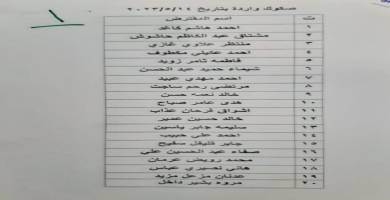 ١
صكوك واردة بتاريخ ٢٠٢٣/٥/١٤
ت اسم المقترض
١ احمد هاشم كاغد
٢ مشتاق عبد الكاظم حاشوش
٣ منتظر علاوي غازي
٤ احمد عتيلي مكطوف
٥ فاطمة ثامر زويد
٦ شيماء حميد عبد الحسن
٧ احمد مهدي عبيد
٨ مرتضى رحم ساجت
٩ خالد نعمه حسن
١٠ هدى عامر صباح
١١ اشواق فرحان عذاب
١٢ خالد حسين عصير
١٣ سليمه جابر ياسين
١٤ احمد علي حبيب
١٥ جابر فليفل سفيح
١٦ صفاء عبد الحسين علي
١٧ محمد رويض عرمان
١٨ هاني نصيري عباس
١٩ عدنان مزعل مزيد
٢٠ مروه بشير داخل